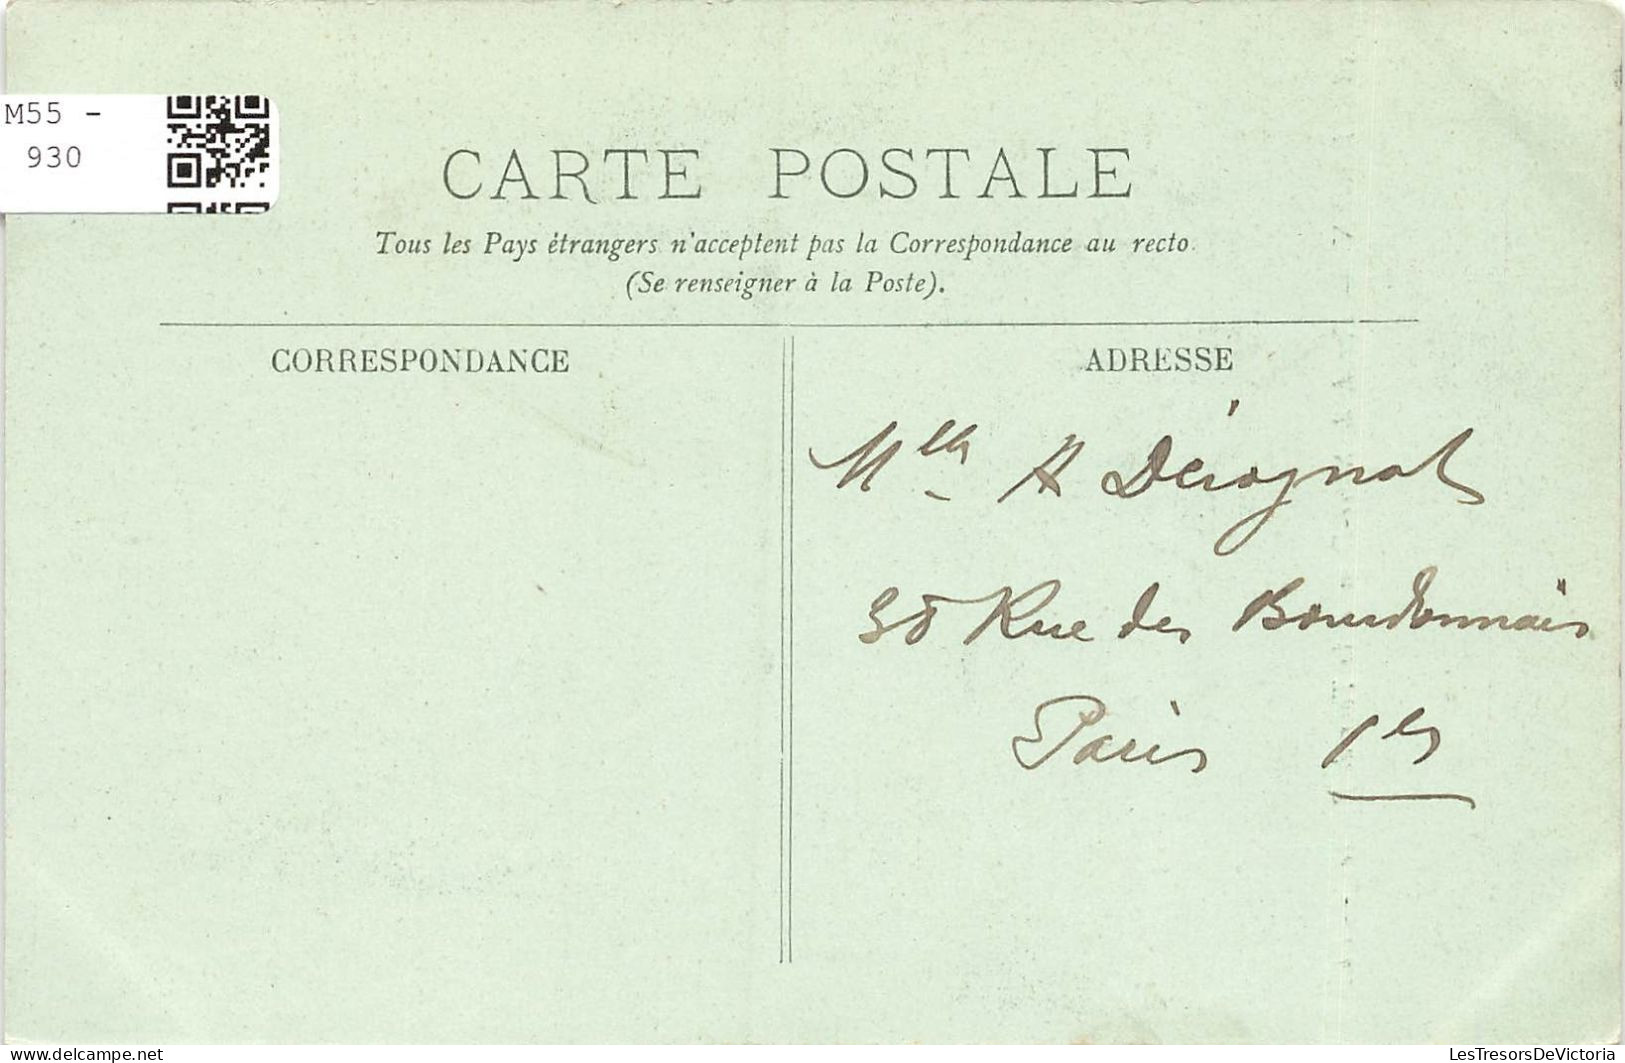 M55 -
930
CARTE POSTALE
Tous les Pays étrangers n'acceptent pas la Correspondance au recto
(Se renseigner à la Poste).
CORRESPONDANCE
ADRESSE
Mlle A Dérognat
38 Rue des Bourdonnais
Paris 1er
delcampe.net
LesTresorsDeVictoria